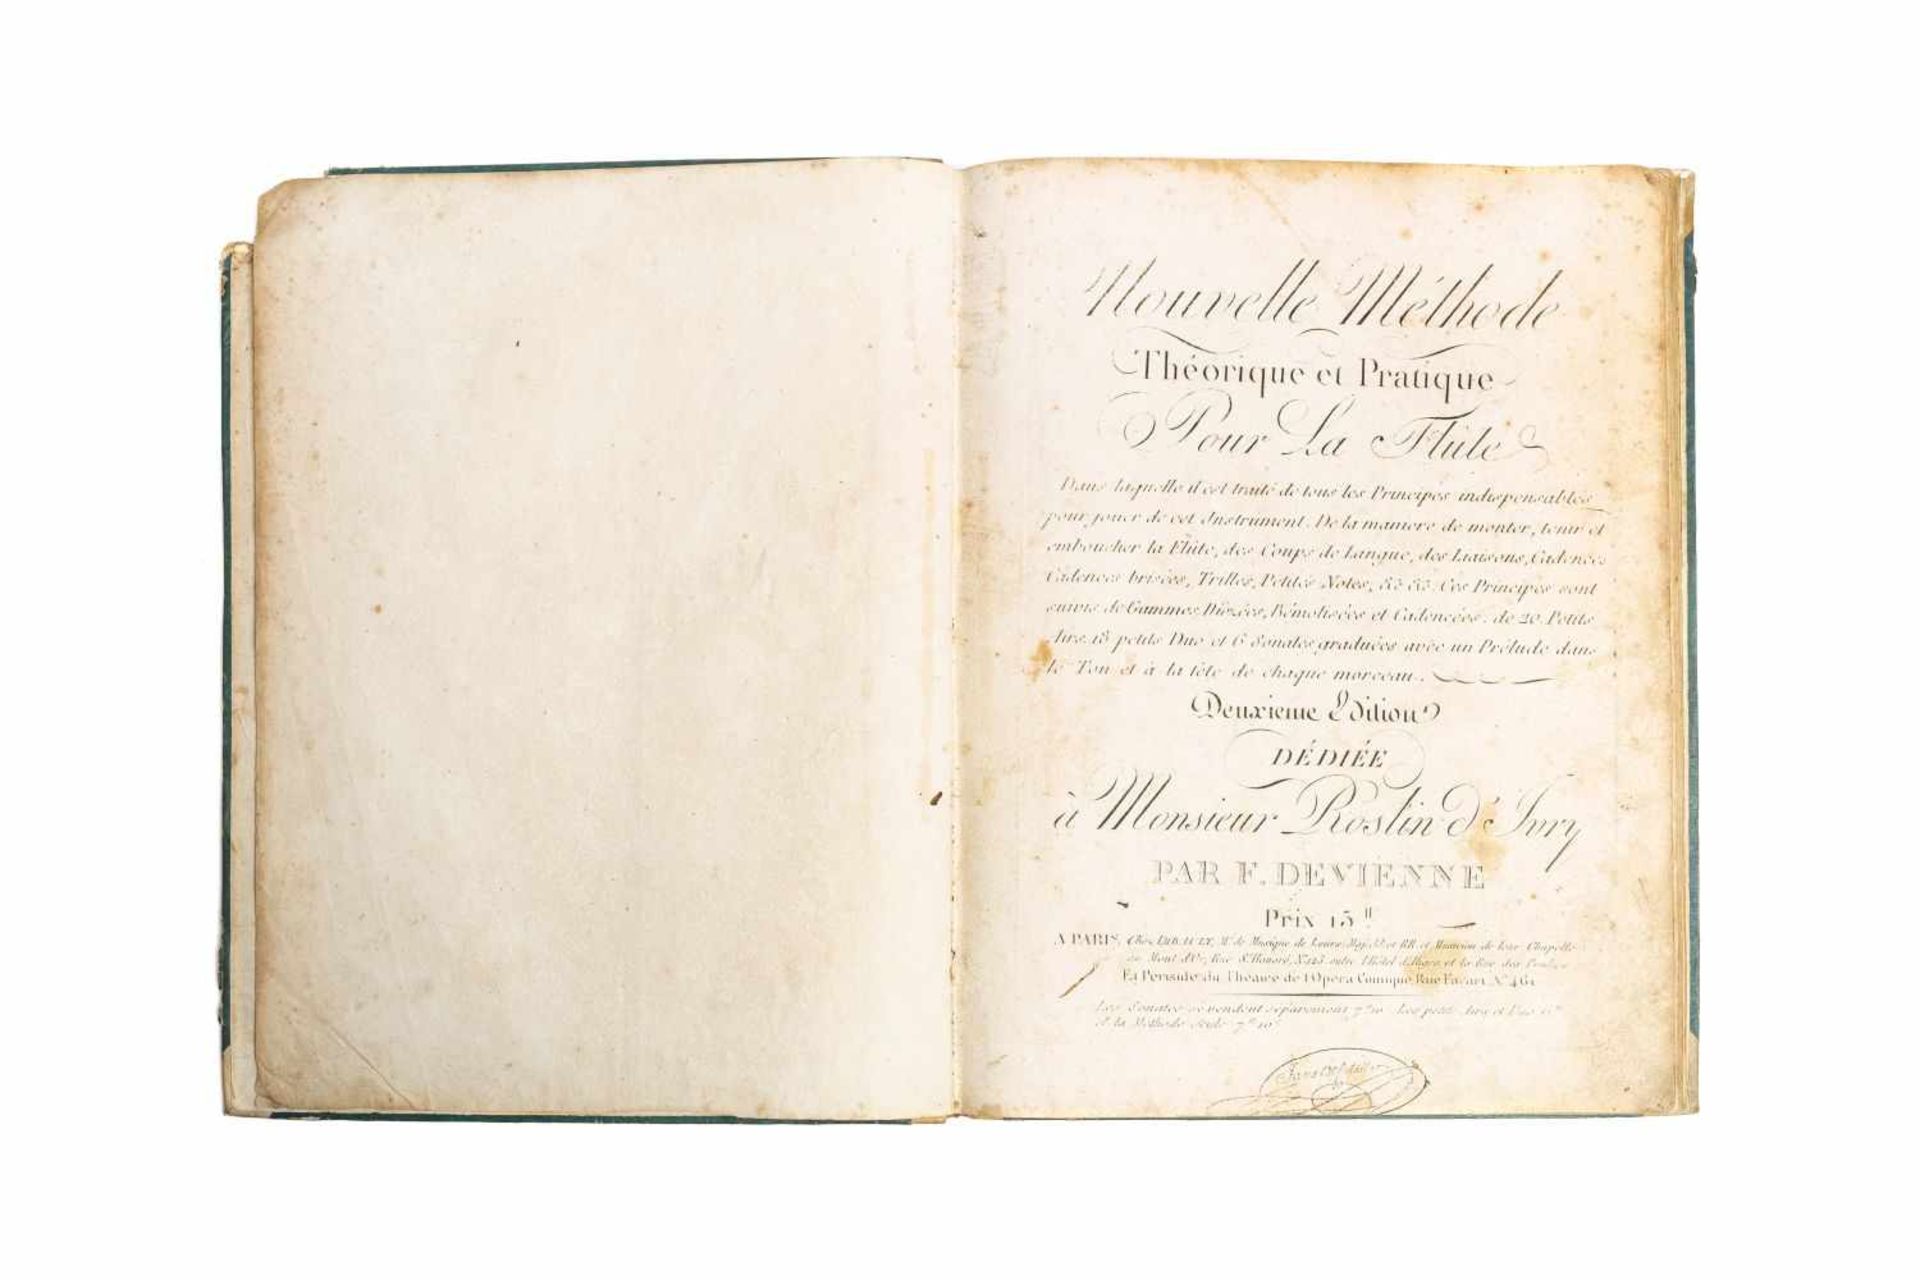 Nouvelle Méthode
Théorique et Pratique
Pour La Flûte
Dans laquelle il est traité de tous les Principes indispensables
pour jouer de cet Instrument. De la maniere de monter, tenir et
emboucher la Flûte, des Coups de Langue, des Liaisons, Cadences
Cadences brisées, Trilles, Petites Notes, &c &c. Ces Principes sont
suivis de Gammes Diézées, Bémolisées et Cadencées. de 20. Petits
Airs. 18 petits Duo et 6 Sonates graduées avec un Prélude dans
le Ton et à la tête de chaque morceau.
Deuxieme Edition
DÉDIÉE
à Monsieur Roslin d'Ivry
PAR F. DEVIENNE
Prix 15ᵗᵗ
A PARIS, Chés IMBAULT, Mᵈ de Musique de Leurs et RR. et Musicien de leur Chapelle
au Mont d'Or, Rue Sᵗ Honoré, Nº 125 entre l'Hôtel d'Aligre et la Rue des Poulies
Et Peristile du Théâtre de l'Opera Comique Rue Favart Nº 461
Les Sonates se vendent séparement 7ᵗᵗ 10ˢ Les petits Airs et Duo
et la Méthode seule 7ᵗᵗ 10ˢ